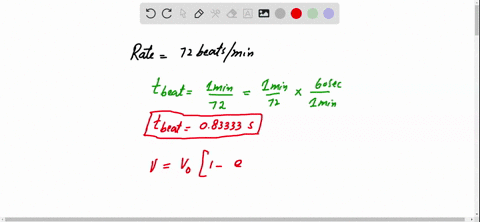 Rate = 72 beats/min
t beat = 1min/72 = 1min/72 × 60sec/1min
t beat = 0.83333 s
V = V₀ [ 1 - e